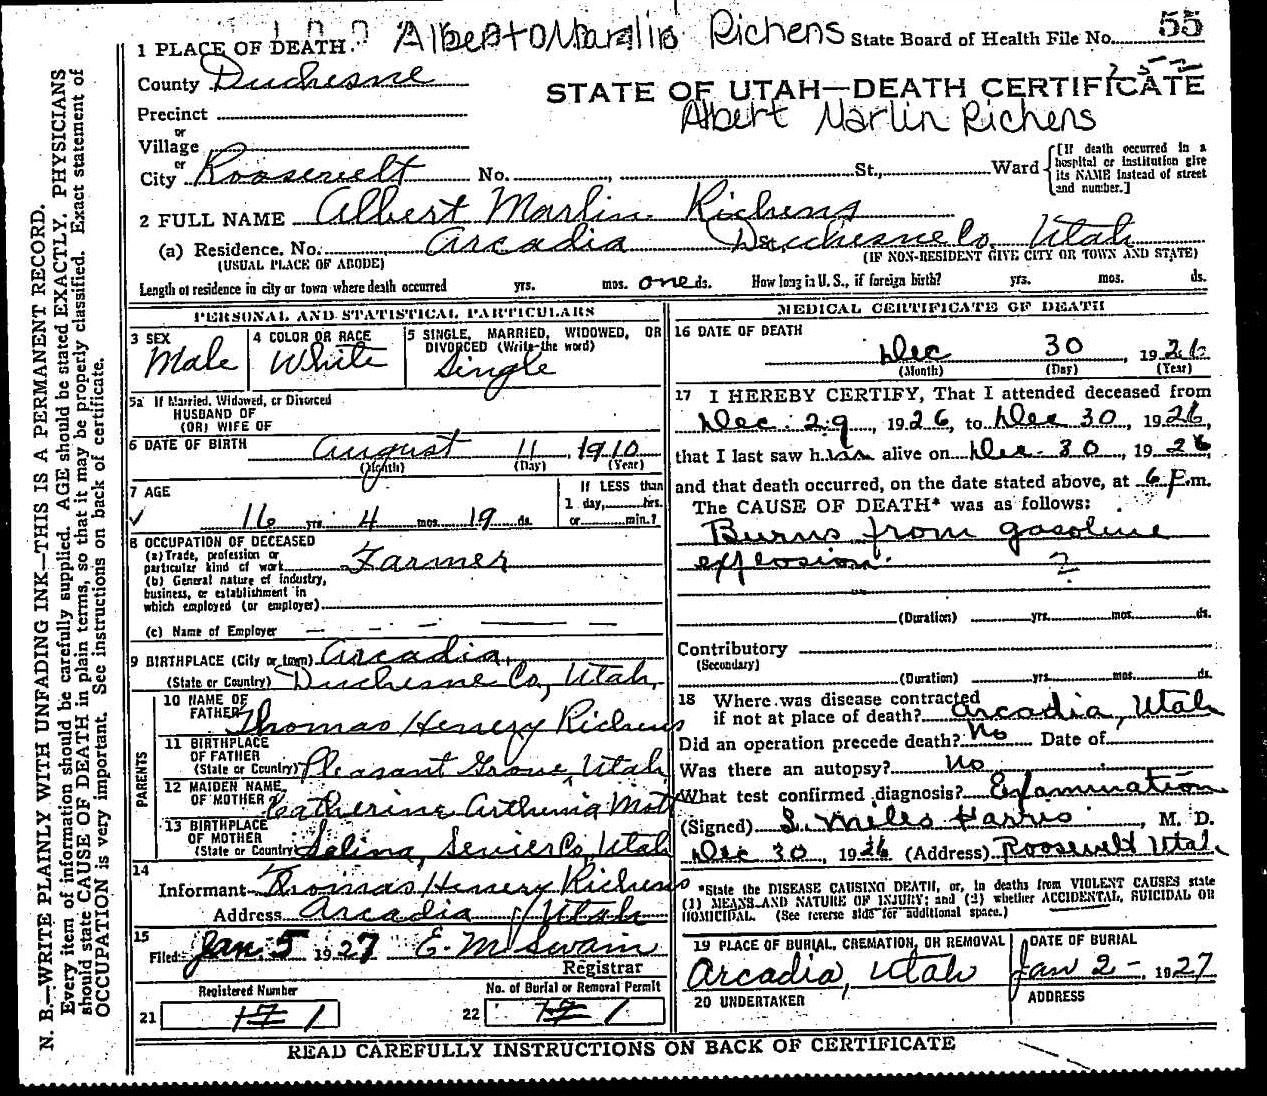 Albert Marlin Richens State Board of Health File No. 55
1 PLACE OF DEATH
County Duchesne
STATE OF UTAH—DEATH CERTIFICATE
Albert Marlin Richens
Precinct
or
Village
or
City Roosevelt No. , St., Ward
[If death occurred in a hospital or institution give its NAME instead of street and number.]
2 FULL NAME Albert Marlin Richens
(a) Residence. No. Arcadia Duchesne Co. Utah
(USUAL PLACE OF ABODE) (IF NON-RESIDENT GIVE CITY OR TOWN AND STATE)
Length of residence in city or town where death occurred yrs. mos. one ds. How long in U. S., if foreign birth? yrs. mos. ds.
PERSONAL AND STATISTICAL PARTICULARS
3 SEX Male
4 COLOR OR RACE White
5 SINGLE, MARRIED, WIDOWED, OR DIVORCED (Write the word) Single
5a If Married, Widowed, or Divorced
HUSBAND OF
(OR) WIFE OF
6 DATE OF BIRTH August 11, 1910
(Month) (Day) (Year)
7 AGE
16 yrs. 4 mos. 19 ds.
If LESS than
1 day, hrs.
or min.?
8 OCCUPATION OF DECEASED
(a) Trade, profession or
particular kind of work Farmer
(b) General nature of industry,
business, or establishment in
which employed (or employer)
(c) Name of Employer
9 BIRTHPLACE (City or town) Arcadia,
(State or Country) Duchesne Co, Utah,
PARENTS
10 NAME OF
FATHER Thomas Henery Richens
11 BIRTHPLACE
OF FATHER
(State or Country) Pleasant Grove, Utah
12 MAIDEN NAME
OF MOTHER Catherine Arthenia Mott
13 BIRTHPLACE
OF MOTHER
(State or Country) Salina, Sevier Co, Utah
14
Informant Thomas Henery Richens
Address Arcadia, Utah
15
Filed Jan. 5 1927 E. M. Swain
Registrar
Registered Number
21 17 1
No. of Burial or Removal Permit
22 17 1
MEDICAL CERTIFICATE OF DEATH
16 DATE OF DEATH
Dec 30, 1926
(Month) (Day) (Year)
17 I HEREBY CERTIFY, That I attended deceased from
Dec. 29, 1926, to Dec 30, 1926,
that I last saw him alive on Dec. 30, 1926,
and that death occurred, on the date stated above, at 6 P.m.
The CAUSE OF DEATH* was as follows:
Burns from gasoline
explosion. ?
(Duration) yrs. mos. ds.
Contributory
(Secondary)
(Duration) yrs. mos. ds.
18 Where was disease contracted
if not at place of death? Arcadia, Utah
Did an operation precede death? No Date of
Was there an autopsy? No
What test confirmed diagnosis? Examination
(Signed) S. Miles Harris, M. D.
Dec 30, 1926 (Address) Roosevelt Utah
*State the DISEASE CAUSING DEATH, or, in deaths from VIOLENT CAUSES state
(1) MEANS AND NATURE OF INJURY; and (2) whether ACCIDENTAL, SUICIDAL OR
HOMICIDAL. (See reverse side for additional space.)
19 PLACE OF BURIAL, CREMATION, OR REMOVAL
Arcadia, Utah
DATE OF BURIAL
Jan 2 - 1927
20 UNDERTAKER
ADDRESS
READ CAREFULLY INSTRUCTIONS ON BACK OF CERTIFICATE
N. B.—WRITE PLAINLY WITH UNFADING INK—THIS IS A PERMANENT RECORD.
Every item of information should be carefully supplied. AGE should be stated EXACTLY. PHYSICIANS
should state CAUSE OF DEATH in plain terms, so that it may be properly classified. Exact statement of
OCCUPATION is very important. See instructions on back of certificate.